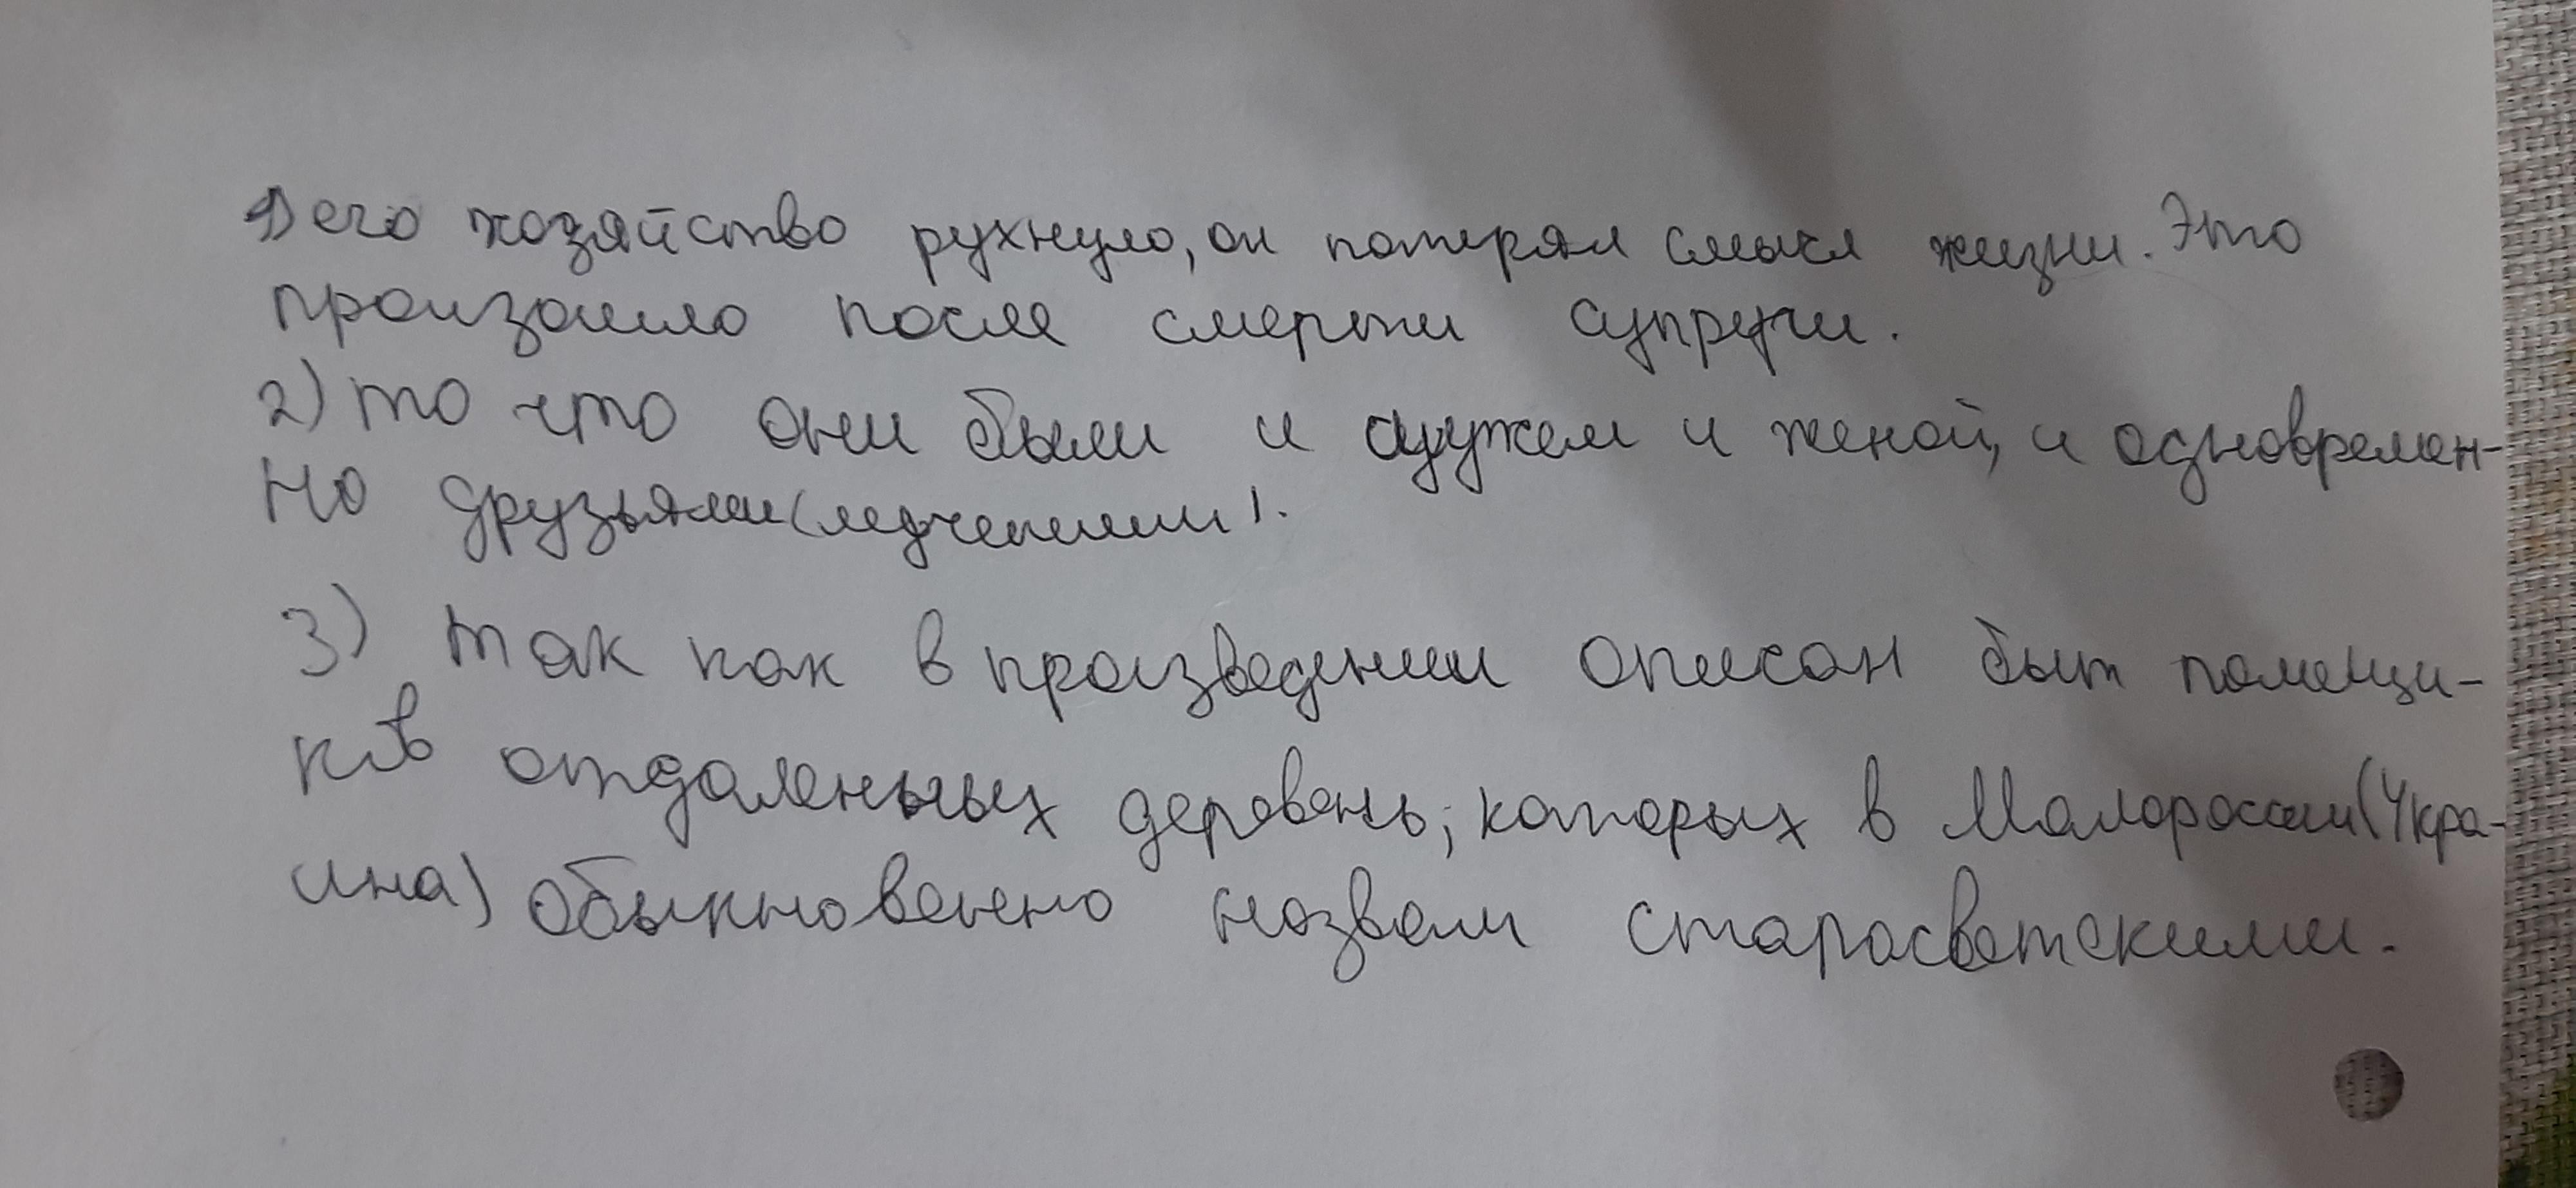 1) его хозяйство рухнуло, он потерял смысл жизни. Это
произошло после смерти супруги.
2) то что они были и мужем и женой, и одновремен-
но друзьями (
3) так как в произведении описан быт помещи-
ков отдаленных деревень, которых в Малороссии (Укра-
ина) обыкновенно назвали старосветскими.